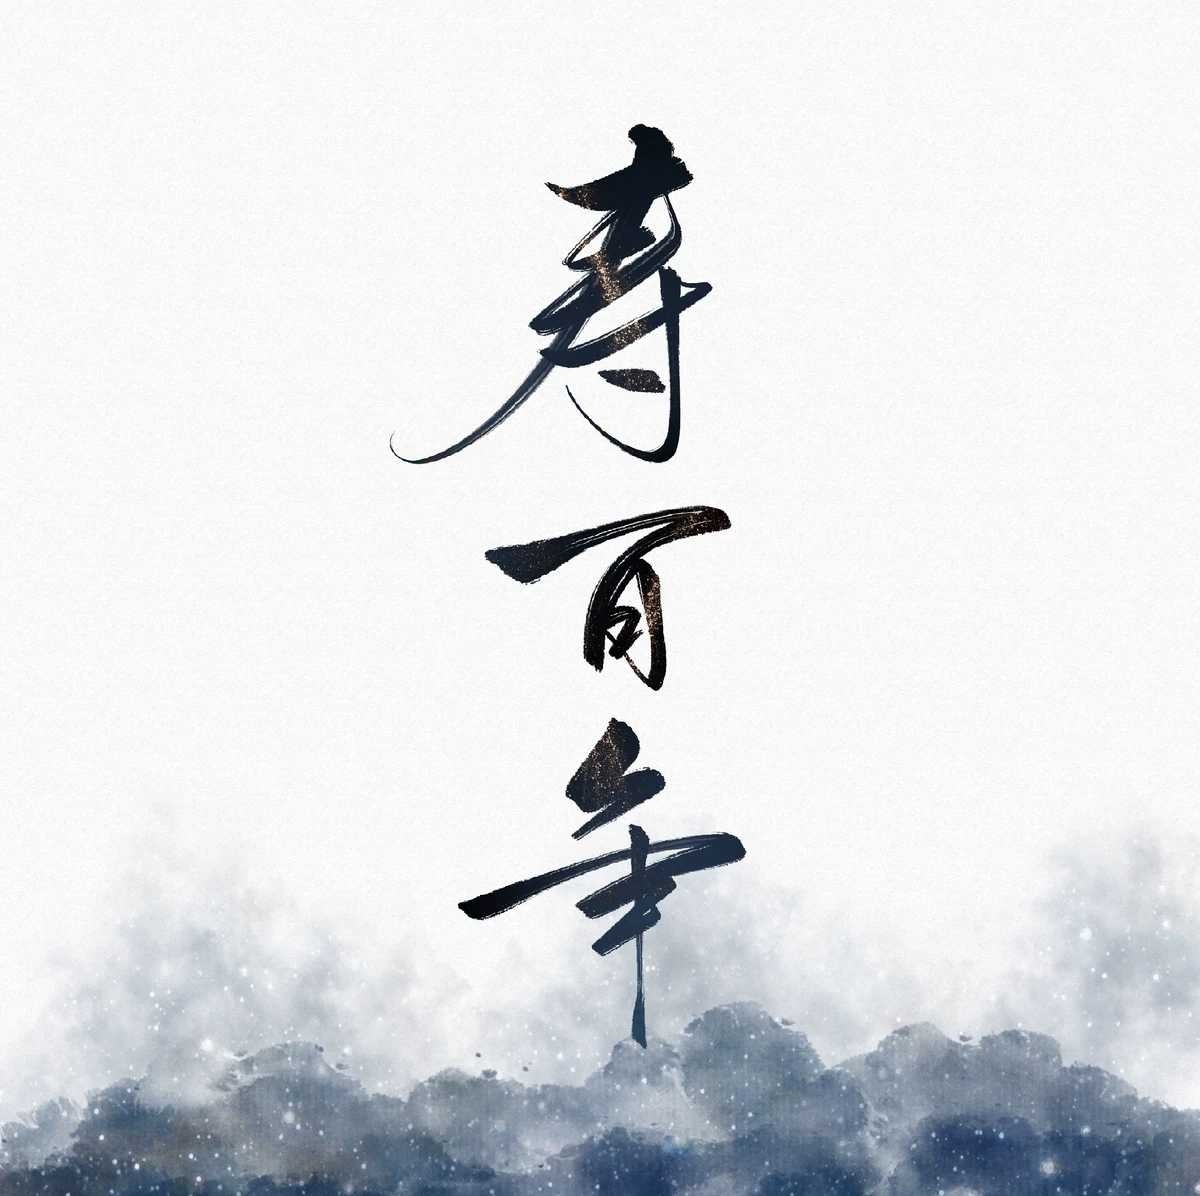 寿百年